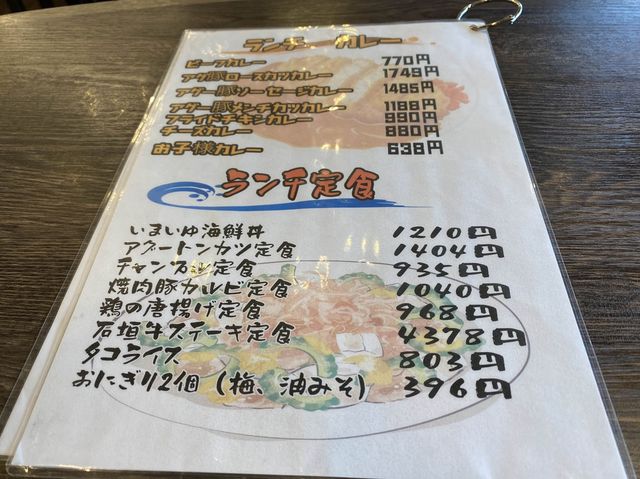 ランチ カレー
ビーフカレー 770円
アグー豚ロースカツカレー 1749円
アグー豚ソーセージカレー 1485円
アグー豚メンチカツカレー 1188円
フライドチキンカレー 990円
チーズカレー 880円
お子様カレー 638円
ランチ定食
いまいゆ海鮮丼 1210円
アグートンカツ定食 1404円
チャンプル定食 935円
焼肉豚カルビ定食 1040円
鶏の唐揚げ定食 968円
石垣牛ステーキ定食 4378円
タコライス 803円
おにぎり2個（梅、油みそ） 396円